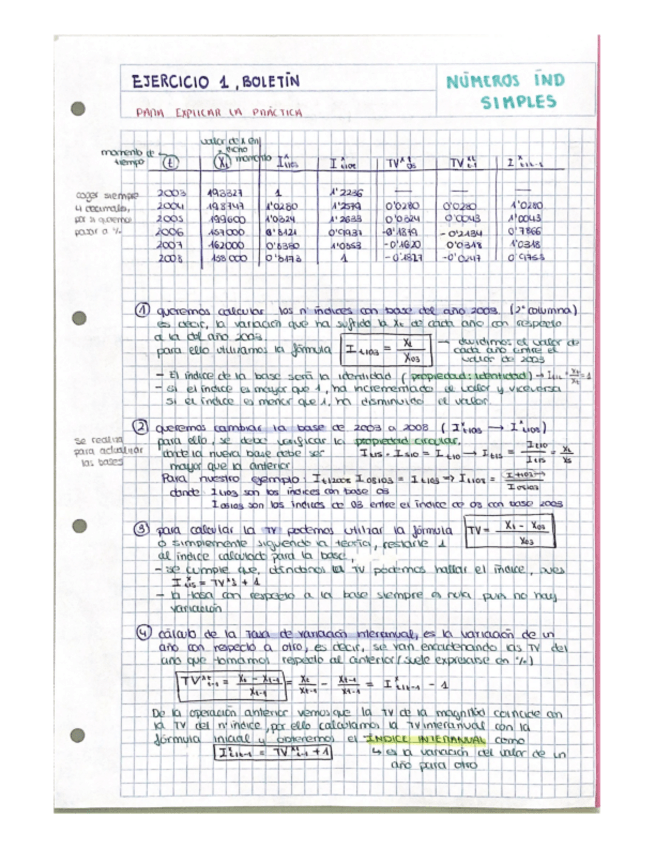 EJERCICIO 1, BOLETÍN
NÚMEROS ÍND
SIMPLES
PARA EXPLICAR LA PRÁCTICA
momento de tiempo (t)
valor de X en dicho momento (Xt)
coger siempre
4 decimales,
por si queremos
pasar a %
2003 193827 1 1'2236 — — —
2004 198749 1'0280 1'2579 0'0280 0'0280 1'0280
2005 199600 1'0324 1'2633 0'0324 0'0043 1'0043
2006 157000 0'8121 0'9937 -0'1879 -0'2134 0'7866
2007 162000 0'8380 1'0253 -0'1620 0'0318 1'0318
2008 158000 0'8173 1 -0'1827 -0'0247 0'9753
① queremos calcular los nº índices con base del año 2003 (2ª columna)
es decir, la variación que ha sufrido la Xt de cada año con respecto
a la del año 2003
para ello utilizamos la fórmula I t103 = Xt / X03 → dividimos el valor de
cada año entre el
valor de 2003
- El índice de la base será la identidad (propiedad: identidad) → Xt/Xt = 1
- si el índice es mayor que 1, ha incrementado el valor y viceversa
si el índice es menor que 1, ha disminuido el valor.
se realiza
para actualizar
las bases
② queremos cambiar la base de 2003 a 2008 (I t103 → I t108)
para ello, se debe verificar la propiedad circular.
donde la nueva base debe ser
mayor que la anterior
Para nuestro ejemplo:
donde I t103 son los índices con base 03
I 08103 son los índices de 03 entre el índice de 03 con base 2003
③ para calcular la TV podemos utilizar la fórmula TV = Xt - X03 / X03
o simplemente siguiendo la teoría, restarle 1
al índice calculado para la base,
- se cumple que, dándonos la TV podemos hallar el índice, pues
- la tasa con respecto a la base siempre es nula pues no hay
variación
④ cálculo de la Tasa de variación interanual, es la variación de un
año con respecto a otro, es decir, se van encadenando las TV del
año que tomamos respecto al anterior (suele expresarse en %)
TV t1t-1 = Xt - Xt-1 / Xt-1 = Xt / Xt-1 - Xt-1 / Xt-1 = I t1t-1 - 1
De la operación anterior vemos que la TV de la magnitud coincide con
la TV del nº índice, por ello calculamos la TV interanual con la
fórmula inicial y obtenemos el ÍNDICE INTERANUAL como
I t1t-1 = TV t1t-1 + 1
↳ es la variación del valor de un
año para otro